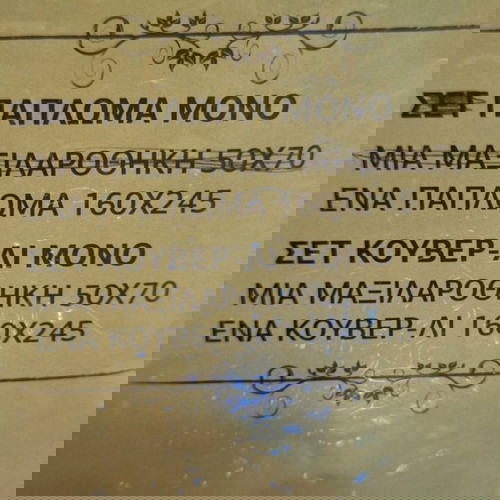 ΣΕΤ ΠΑΠΛΩΜΑ ΜΟΝΟ
ΜΙΑ ΜΑΞΙΛΑΡΟΘΗΚΗ 50Χ70
ΕΝΑ ΠΑΠΛΩΜΑ 160Χ245
ΣΕΤ ΚΟΥΒΕΡ-ΛΙ ΜΟΝΟ
ΜΙΑ ΜΑΞΙΛΑΡΟΘΗΚΗ 50Χ70
ΕΝΑ ΚΟΥΒΕΡ-ΛΙ 160Χ245